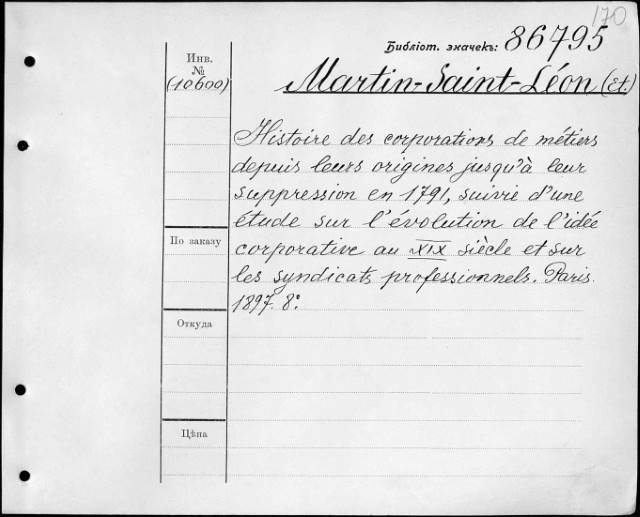 170
Библіот. значекъ: 86795
Инв.
№
(10600)
Martin-Saint-Léon (Et.)
Histoire des corporations de métiers
depuis leurs origines jusqu'à leur
suppression en 1791, suivie d'une
étude sur l'évolution de l'idée
corporative au XIX siècle et sur
les syndicats professionnels. Paris.
1897. 8º.
По заказу
Откуда
Цѣна